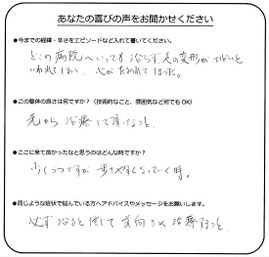 あなたの喜びの声をお聞かせください
●今までの経緯・辛さをエピソードなど入れて書いてください。
どこの病院へいっても治らず、足の変形が
いわれてしまい、心がおれてしまった。
●この整体の良さは何ですか?(技術的なこと、雰囲気など何でもOK)
元から治療して頂けること。
●ここに来て良かったなと思うのはどんな時ですか?
少しづつですが歩きやすくなっていく時。
●同じような症状で悩んでいる方へアドバイスやメッセージをお願いします。
必ず治ると信じて前向きに治療すること。